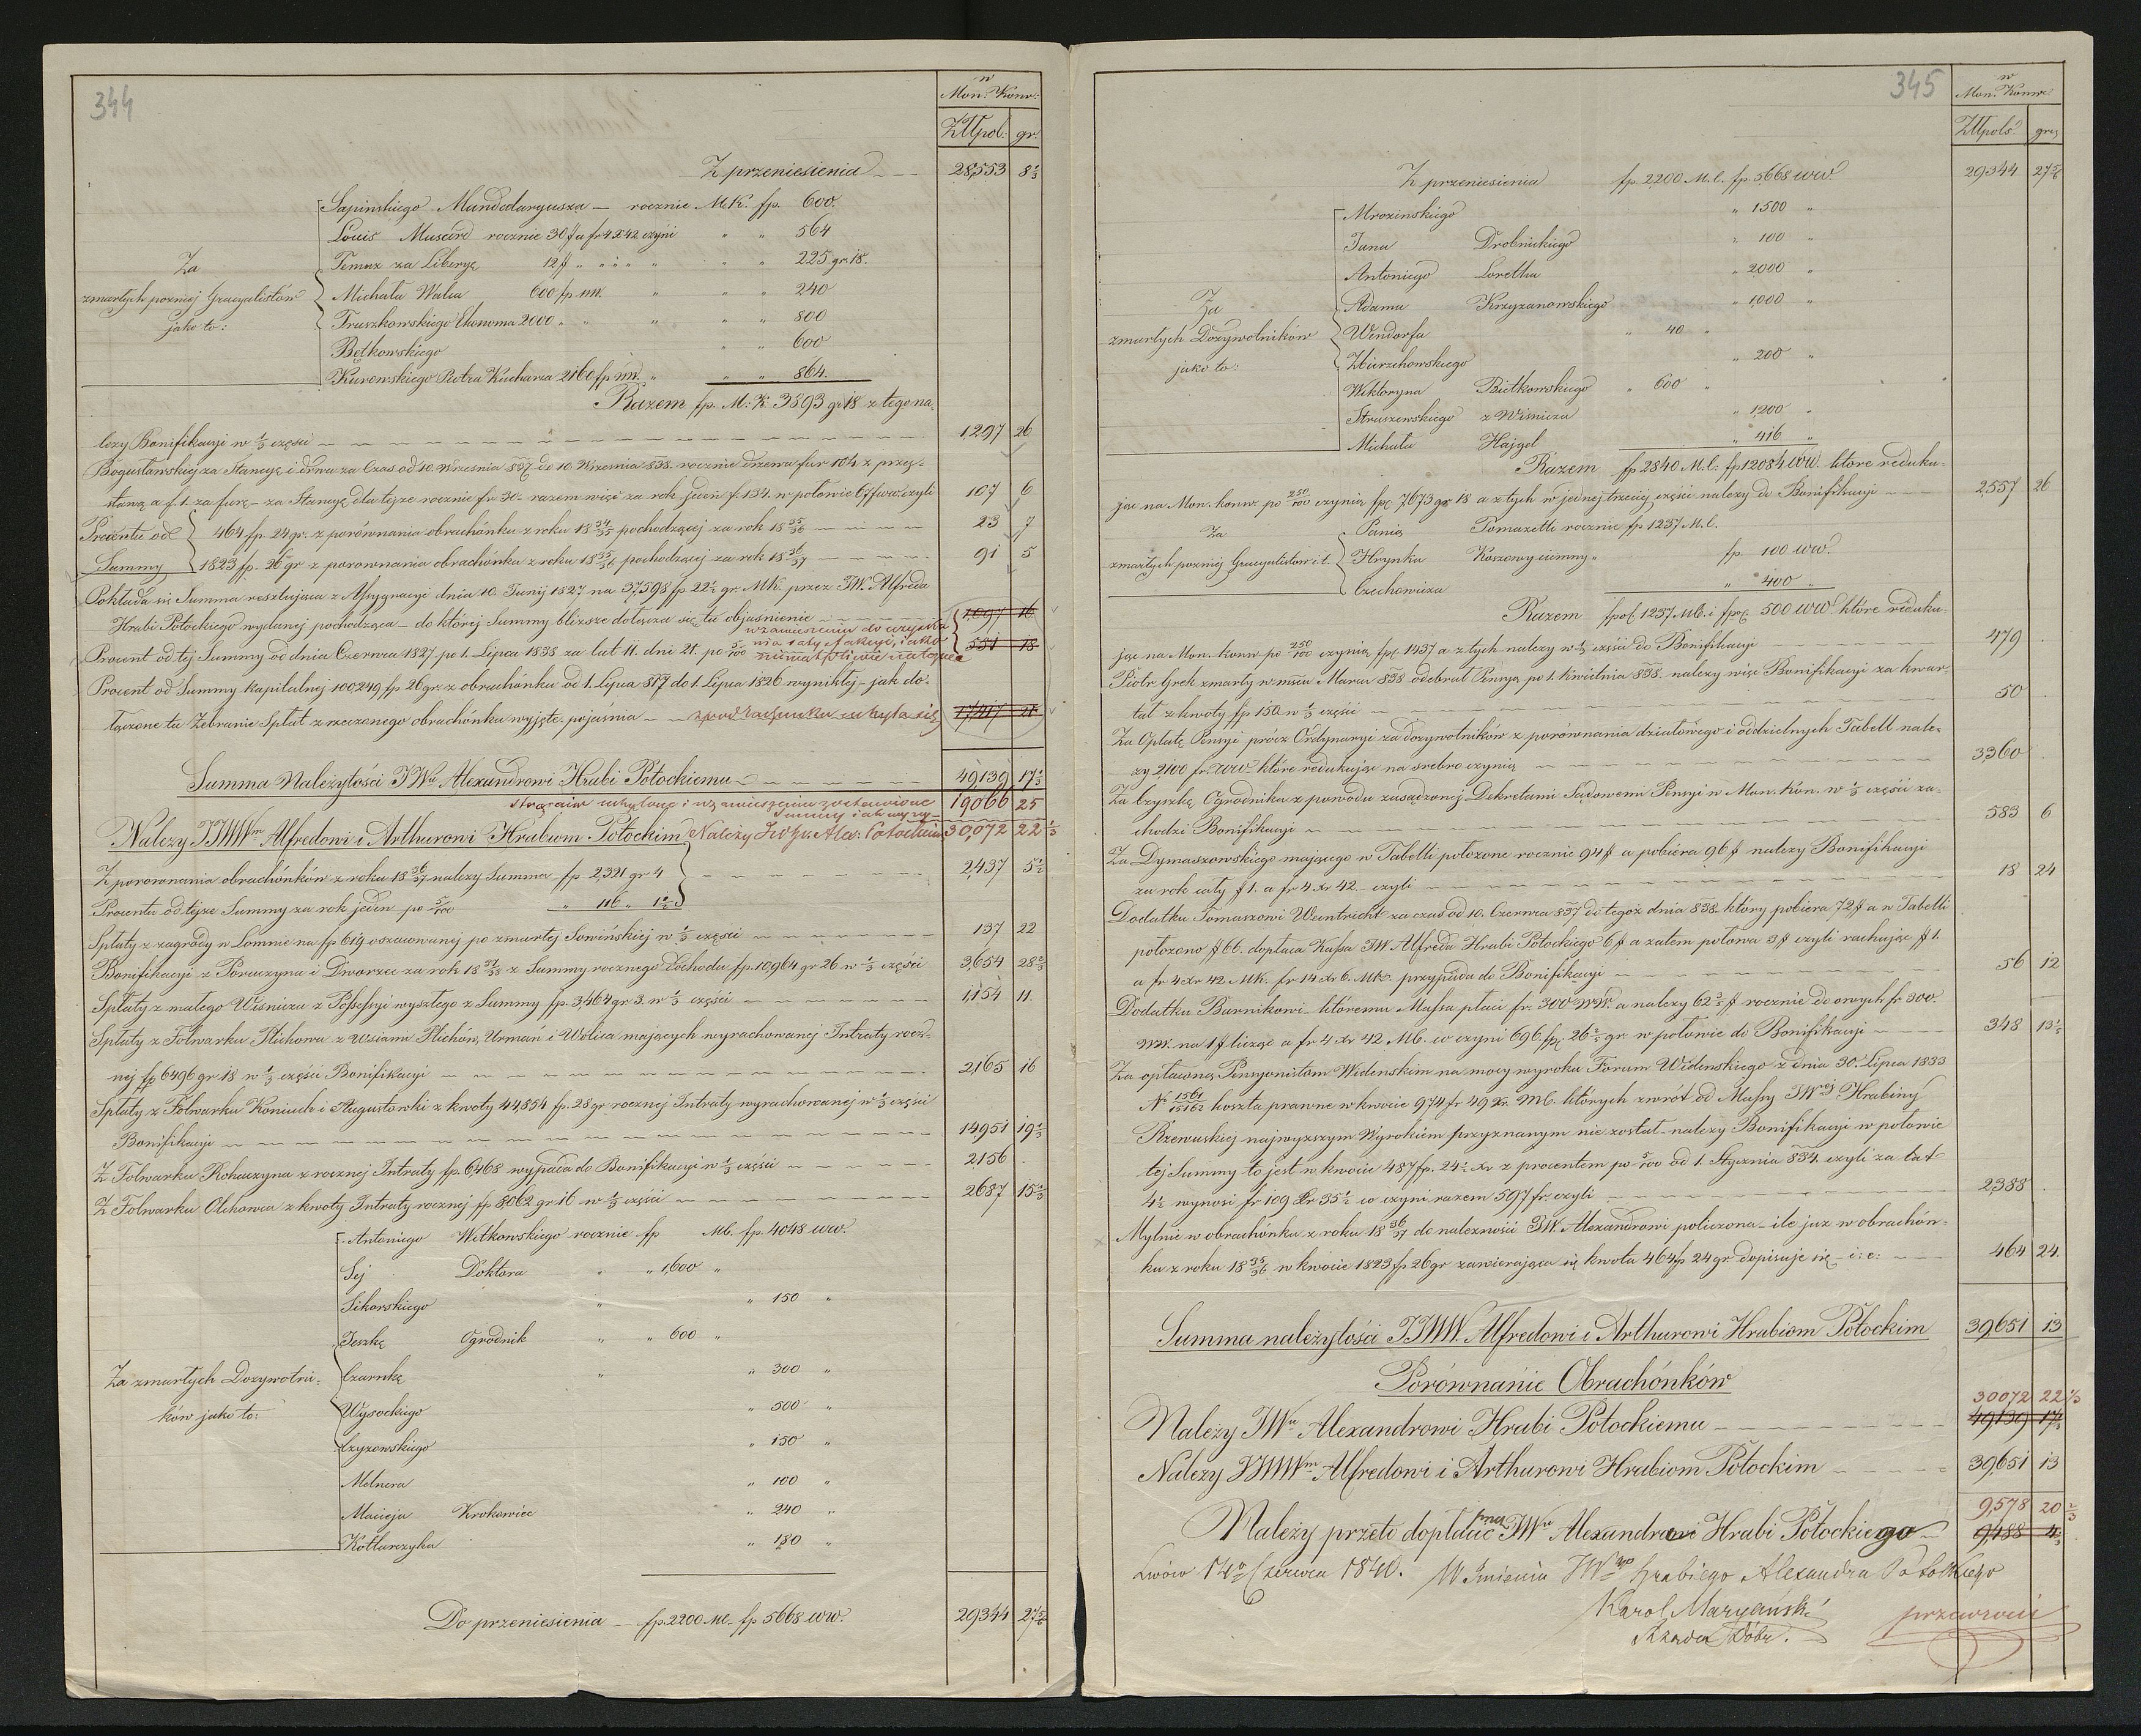 344
w
Mon: Konw:
ZłPpol: gr.
Z przeniesienia 28,553 8 1/3
Za
zmarłych pozniej Gracyalistów
jako to:
Sapinskiego Mundataryusza — rocznie MK. fp. 600.
Louis Museard rocznie 30 # a fr 4 X 42 czyni " " 564
Temuz za Liberyę 12 # " " " " " " 225 gr 18.
Michała Walca 600 fp ww. " " " 240
Truszkowskiego Ekonoma 2000 " " " " " 800
Bętkowskiego " " 600
Kurowskiego Piotra Kucharza 2160 fp ww. " " " 864.
Razem fp. M: K: 3893 gr 18 z tego na-
lezy Bonifikacyi w 1/3 części 1,297 26
Bogusławskiej za Stancyę i drwa za Czas od 10. Września 837 do 10 Września 838. rocznie drzewa fur 104 z przy-
stawą a f. 1. za furę — za Stancyę dla tejze rocznie fr 30. razem więc za rok jeden f. 134. w połowie 67 fww. czyli 107 6
Procentu od
Summy
464 fp 24 gr. z porównania obrachónku z roku 18 34/35 pochodzącej za rok 18 35/36 23 7
1823 fp. 26 gr z porównania obrachónku z roku 18 35/36 pochodzącej za rok 18 36/37 91 5
Pokłada się Summa resztująca z Assygnacyi dnia 10. Junij 1827 na 37,598 fp. 22 1/2 gr. MK. przez JW. Alfreda
Hrabi Potockiego wydanej pochodząca — do której Summy bliższe dołącza się tu objasnienie 1,097 16
w zawieszeniu do wyjaśnia
nia całej takcyi, jako
Procent od tej Summy od dnia Czerwca 1827 po 1. Lipca 1838 za lat 11. dni 21. po 5/100 581 18
Procent od Summy kapitalnej 100,249 fp 26 gr. z obrachónku od 1. Lipca 817 do 1. Lipca 1826 wynikłej — jak do-
łączone tu Zebranie Spłat z rzeczonego obrachónku wyjęte, pojaśnia — z pod rachunku uchyla się 17,417 21
Summa Należytości JWu Alexandrowi Hrabi Potockiemu 49,139 17 1/3
Strąciw uchylone i w zawieszeniu zostawione 19066 25
Summy jak wyzy-
Nalezy JJWWm Alfredowi i Arthurowi Hrabiom Potockim Należy JW Hr. Alex: Potockiemu 30,072 22 1/3
Z porownania obrachónków z roku 18 36/37 nalezy Summa fp 2,321 gr 4 2,437 5 1/2
Procentu od tejze Summy za rok jeden po 5/100 " 116 " 1 1/2
Spłaty z zagrody w Łomnie na fp 619 oszacowanej po zmarłej Sowińskiej w 1/3 części 137 22
Bonifikacyi z Poraczyna i Dworzca za rok 18 37/38 z Summy rocznego dochodu fp. 10,964 gr 26 w 1/3 części 3,654 28 2/3
Spłaty z małego Wiśnicza z Possessyi wyszłego z Summy fp. 3,464 gr 3 w 1/3 części 1,154 11.
Spłaty z Folwarku Plichowa z Wsiami Plichów, Urmań i Wolica mających wyrachowanej Intraty rocz-
nej fp 6496 gr 18 w 1/3 części Bonifikacyi 2,165 16
Spłaty z Folwarku Koniuch i Augustówki z kwoty 44,854 fp. 28 gr rocznej Intraty wyrachowanej w 1/3 części
Bonifikacyi 14,951 19 1/3
Z Folwarku Rohaczyna z rocznej Intraty fp. 6,468 wypada do Bonifikacyi w 1/3 części 2,156 .
Z Folwarku Olchowca z kwoty Intraty rocznej fp 8,062 gr 16 w 1/3 części 2687 15 1/3
Za zmarłych Dozywotni-
ków jako to:
Antoniego Witkowskiego rocznie fp Mk. fp. 4048 ww.
Sej Doktora " " 1,600 "
Sikorskiego " " 150 "
Jeszkę Ogrodnik " " 600 "
Czarnkę " " 300 "
Wysockiego " 500 "
Czyzowskiego " 150 "
Melnera " 100 "
Macieja Krokowiec " 240 "
Kotlarczyka " 180 "
Do przeniesienia — fp. 2200 Mk. fp 5668 ww. 29344 27 5/6
345
w
Mon. Konw:
ZłPpols: grz
Z przeniesienia fp. 2,200 M. k. fp. 5,668 ww. 29344 27 5/6
Za
zmarłych Dozywotników
jako to:
Mrozinskiego " 1500 "
Jana Drobnickiego " 100 "
Antoniego Loretha " 2000 "
Adama Krzyzanowskiego " 1,000 "
Windorfa " 40 "
Zbierzchowskiego " 200 "
Wiktoryna Bietkowskiego " 600 "
Straszewskiego z Wiśnicza " 1,200 "
Michała Hajgel " 416 "
Razem fp 2840 M. k: fp 12084 ww. które reduku-
jąc na Mon. konw. po 250/100 czynią fp 7,673 gr 18 a z tych w jednej trzeciej części nalezy do Bonifikacyi 2,557 26
Za
zmarłych pozniej Gracyalistow i t.
Panią Tomazelli rocznie fp 1237 M. k.
Hrynka Koszowy ciemny " fp. 100 ww.
Czechowicza " 400 "
Razem fp 1237 Mk. i fp 500 ww. które reduku-
jąc na Mon. konw. po 250/100 czynią fp 1437 a z tych nalezy w 1/3 części do Bonifikacyi 479 .
Piotr Grek zmarły w mcu Marcu 838 odebrał Pensyą po 1. Kwietnia 838. nalezy więc Bonifikacyi za kwar-
tał z kwoty fp 150 w 1/3 części 50 .
Za Opłatę Pensyi prócz Ordynaryi za dozywotników z porównania działowego i oddzielnych Tabell nale-
zy 2,100 fr. ww. które redukując na srebro czynią 3360
Za Czyszkę Ogrodnika z powodu zasądzonej Dekretami Sądowemi Pensyi w Mon. kon. w 1/3 części za-
chodzi Bonifikacyi 583 6
Za Dymaszowskiego mającego w Tabelli położone rocznie 94 # a pobiera 96 # nalezy Bonifikacyi
za rok cały # 1. a fr 4 Xr 42. — czyli 18 24
Dodatku Tomaszowi Weintricht za czas od 10. Czerwca 837 do tegoż dnia 838 który pobiera 72 # a w Tabelli
położono # 66. dopłaca Kassa JW. Alfreda Hrabi Potockiego 6 # a zatem połowa 3 # czyli rachując # 1.
a fr 4 Xr 42 MK. fr 14 Xr 6. MK. przypada do Bonifikacyi 56 12
Dodatku Burnikowi — któremu Massa płaci fr. 300 WW. a nalezy 62 2/5 # rocznie do owych fr 300.
WW. na 1 # licząc a fr. 4 Xr 42 Mk. co czyni 696 fp 26 2/5 gr w połowie do Bonifikacyi 348 13 1/5
Za opłaconą Pensyonistom Widenskim na mocy wyroku Forum Widenskiego z dnia 30. Lipca 1833
No 1561/15162 koszta prawne w kwocie 974 fr 49 Xr. Mk. których zwrót od Massy JWej Hrabiny
Rzewuskiej najwyzszym Wyrokiem przyznanym nie został — nalezy Bonifikacyi w połowie
tej Summy to jest w kwocie 487 fp. 24 1/2 Xr z procentem po 5/100 od 1. Stycznia 834. czyli za lat
4 1/2 wynosi fr 109 Xr 35 1/2 co czyni razem 597 fr. czyli 2,388 .
Mylnie w obrachónku z roku 18 36/37 do nalezności JW. Alexandrowi policzona — ile juz w obrachón-
ku z roku 18 35/36 w kwocie 1823 fp 26 gr zawierająca się kwota 464 fp 24 gr. dopisuje się i: e: 464 24
Summa należytości JJWW. Alfredowi i Arthurowi Hrabiom Potockim 39,651 13
Porównanie Obrachónków
30072 22 1/3
Należy JWu Alexandrowi Hrabi Potockiemu 49139 17 1/3
Należy JJWWm Alfredowi i Arthurowi Hrabiom Potockim 39,651 13
9,578 20 2/3
Należy przeto dopłacić ma JWu Alexandrowi Hrabi Potockiego 9,488 4 1/3
Lwów 14º Czerwca 1840. W Imieniu JWgo Hrabiego Alexandra Potockiego
Karol Maryański
Rządca Dóbr.
przewrócić